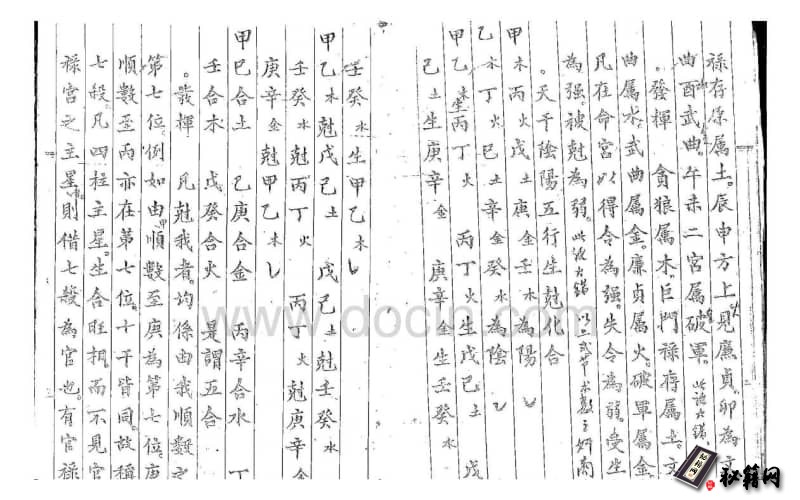 禄存原属土。辰申方上見廉貞。卯為文
曲酉武曲。午未二宮属破軍。此说大錯
。發揮 貪狼属木。巨門禄存属土。文
曲属水。武曲属金。廉貞属火。破軍属金
凡在命宮以得令為强。失令為弱。受生
為强。被尅為弱。此说大錯
。天干陰陽五行生尅化合
甲木丙火戊土庚金壬水為陽
乙木丁火巳土辛金癸水為陰
甲乙木生丙丁火 丙丁火生戊巳土 戊
己土生庚辛金 庚辛金生壬癸水
壬癸水生甲乙木
甲乙木尅戊己土 戊己土尅壬癸水
壬癸水尅丙丁火 丙丁火尅庚辛金
庚辛金尅甲乙木
甲巳合土 乙庚合金 丙辛合水 丁
壬合木 戊癸合火 是謂五合
。發揮 凡尅我者。均係由我順數之
第七位。例如由甲順數至庚為第七位。庚
順數至丙亦在第七位。十干皆同。故稱
七殺凡四柱主星。生合旺相。而不見官
禄宮之主星者。則借七殺為官也。有官禄
www.docin.com
秘籍网